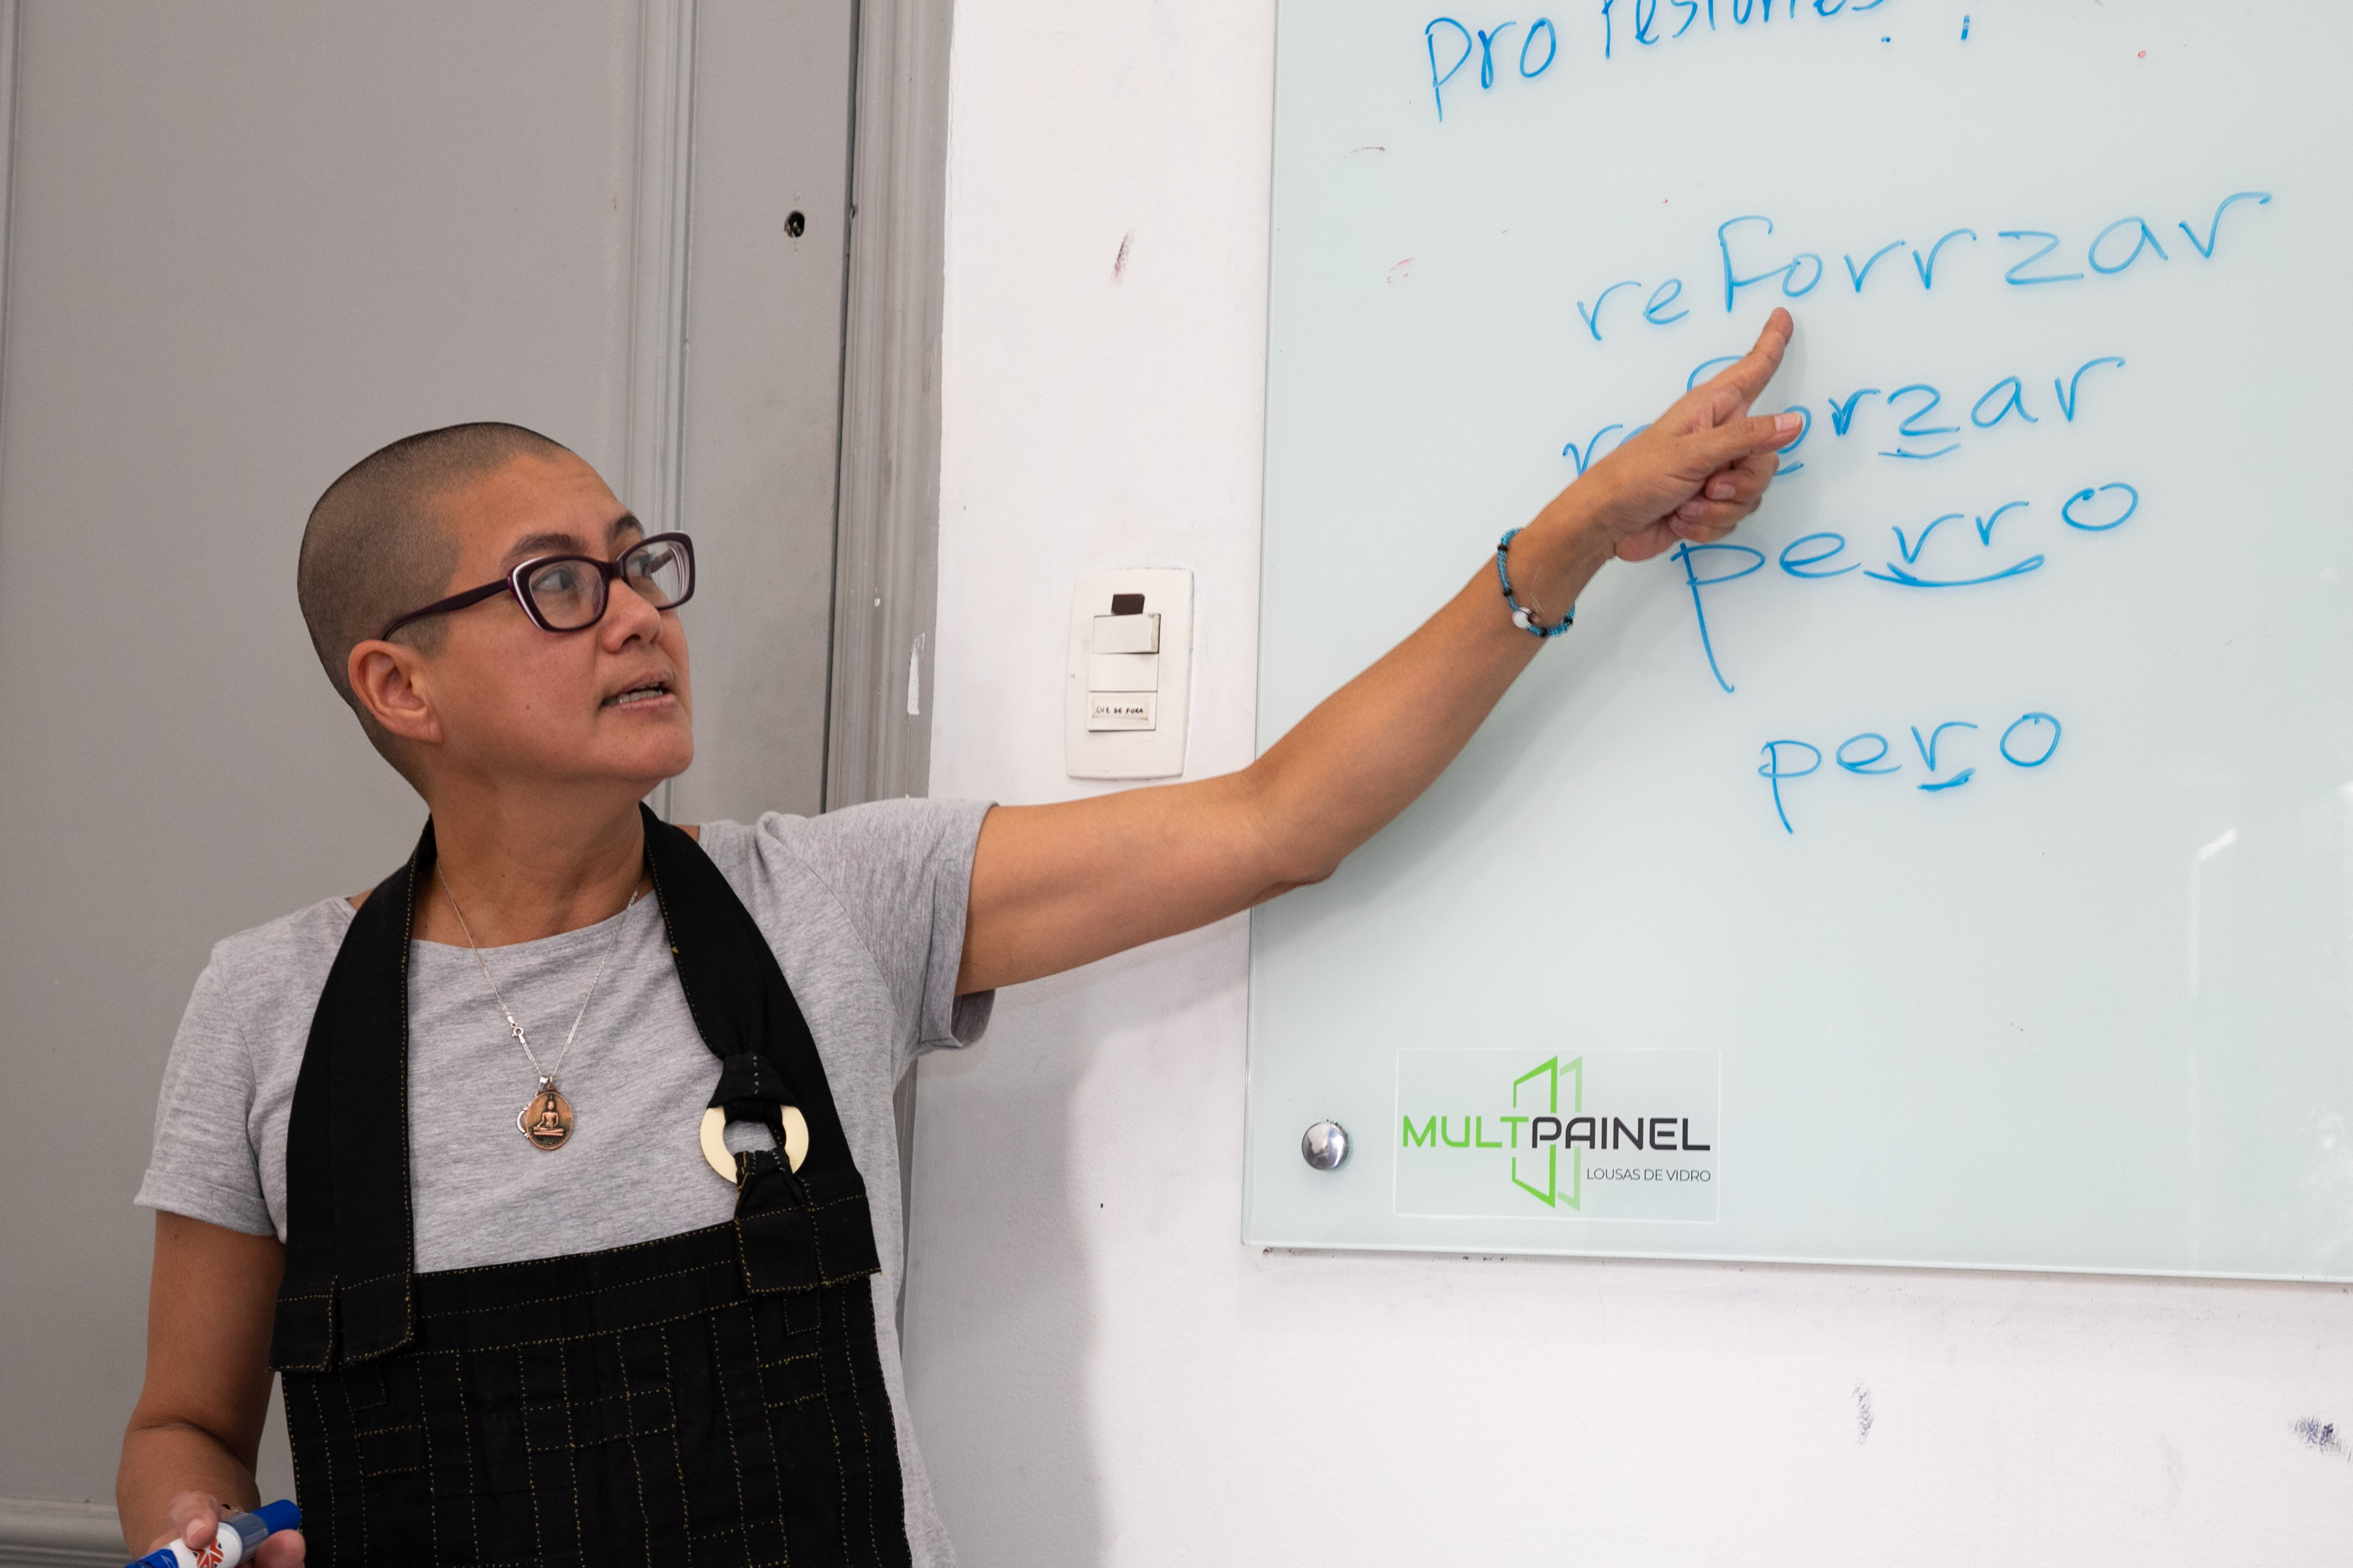 profesiones
reforrzar
reforzar
perro
pero
LUZ DE FORA
MULTPAINEL
LOUSAS DE VIDRO